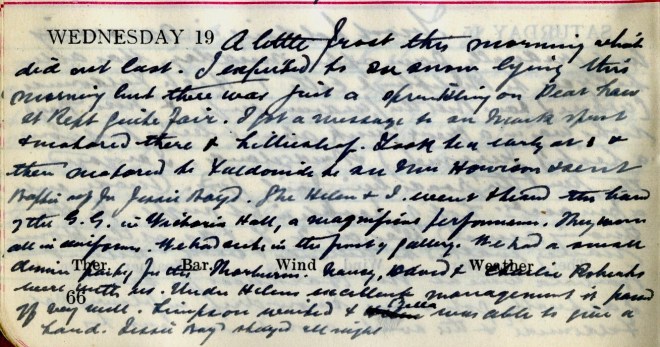 WEDNESDAY 19 A little frost this morning which
did not last. I expected to see snow lying this
morning but there was just a sprinkling on Dear Law
It kept quite fair. I got a message to
& motored there & Took tea early at &
then motored to to see Mrs Howison & sent
for Jessie Boyd. She Helen & I went & heard the band
of the G.G. in Victoria Hall, a magnificent performance. They were
all in uniforms. We had seats in the front of gallery. We had a small
dinner party Nancy, David & Roberts
Ther. Bar. Wind Weather
were with us. Under Helens excellent management it passed
66
off very well. Simpson waited & Bella was able to give a
hand. Jessie Boyd stayed all night